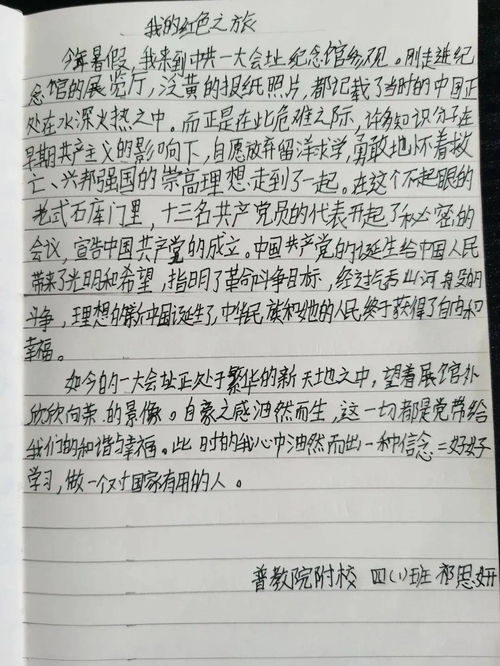 我的红色之旅
今年暑假,我来到中共一大会址纪念馆参观。刚走进纪
念馆的展览厅,泛黄的报纸照片,都记载了当时的中国正
处在水深火热之中。而正是在此危难之际,许多知识分子在
早期共产主义的影响下,自愿放弃留洋求学,勇敢地怀着救
亡、兴邦强国的崇高理想走到了一起。在这个不起眼的
老式石库门里,十三名共产党员的代表开起了秘密的
会议,宣告中国共产党的成立。中国共产党的诞生给中国人民
带来了光明和希望,指明了革命斗争目标,经过气吞山河的
斗争,理想的新中国诞生了,中华民族和她的人民终于获得了自由和
幸福。
如今的一大会址正处于繁华的新天地之中,望着展馆外
欣欣向荣的景像。自豪之感油然而生,这一切都是党带给
我们的和谐与幸福。此时的我心中油然而出一种信念=好好
学习,做一个对国家有用的人。
普教院附校 四(1)班 祁思妍